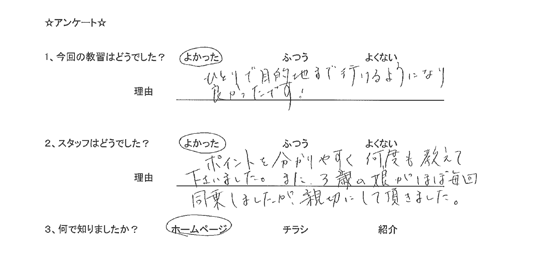 ☆アンケート☆
1、今回の教習はどうでした？ よかった ふつう よくない
ひとりで目的地まで行けるようになり
理由 良かったです！
2、スタッフはどうでした？ よかった ふつう よくない
ポイントを分かりやすく何度も教えて
理由 下さいました。また、3歳の娘がほぼ毎回
同乗しましたが、親切にして頂きました。
3、何で知りましたか？ ホームページ チラシ 紹介